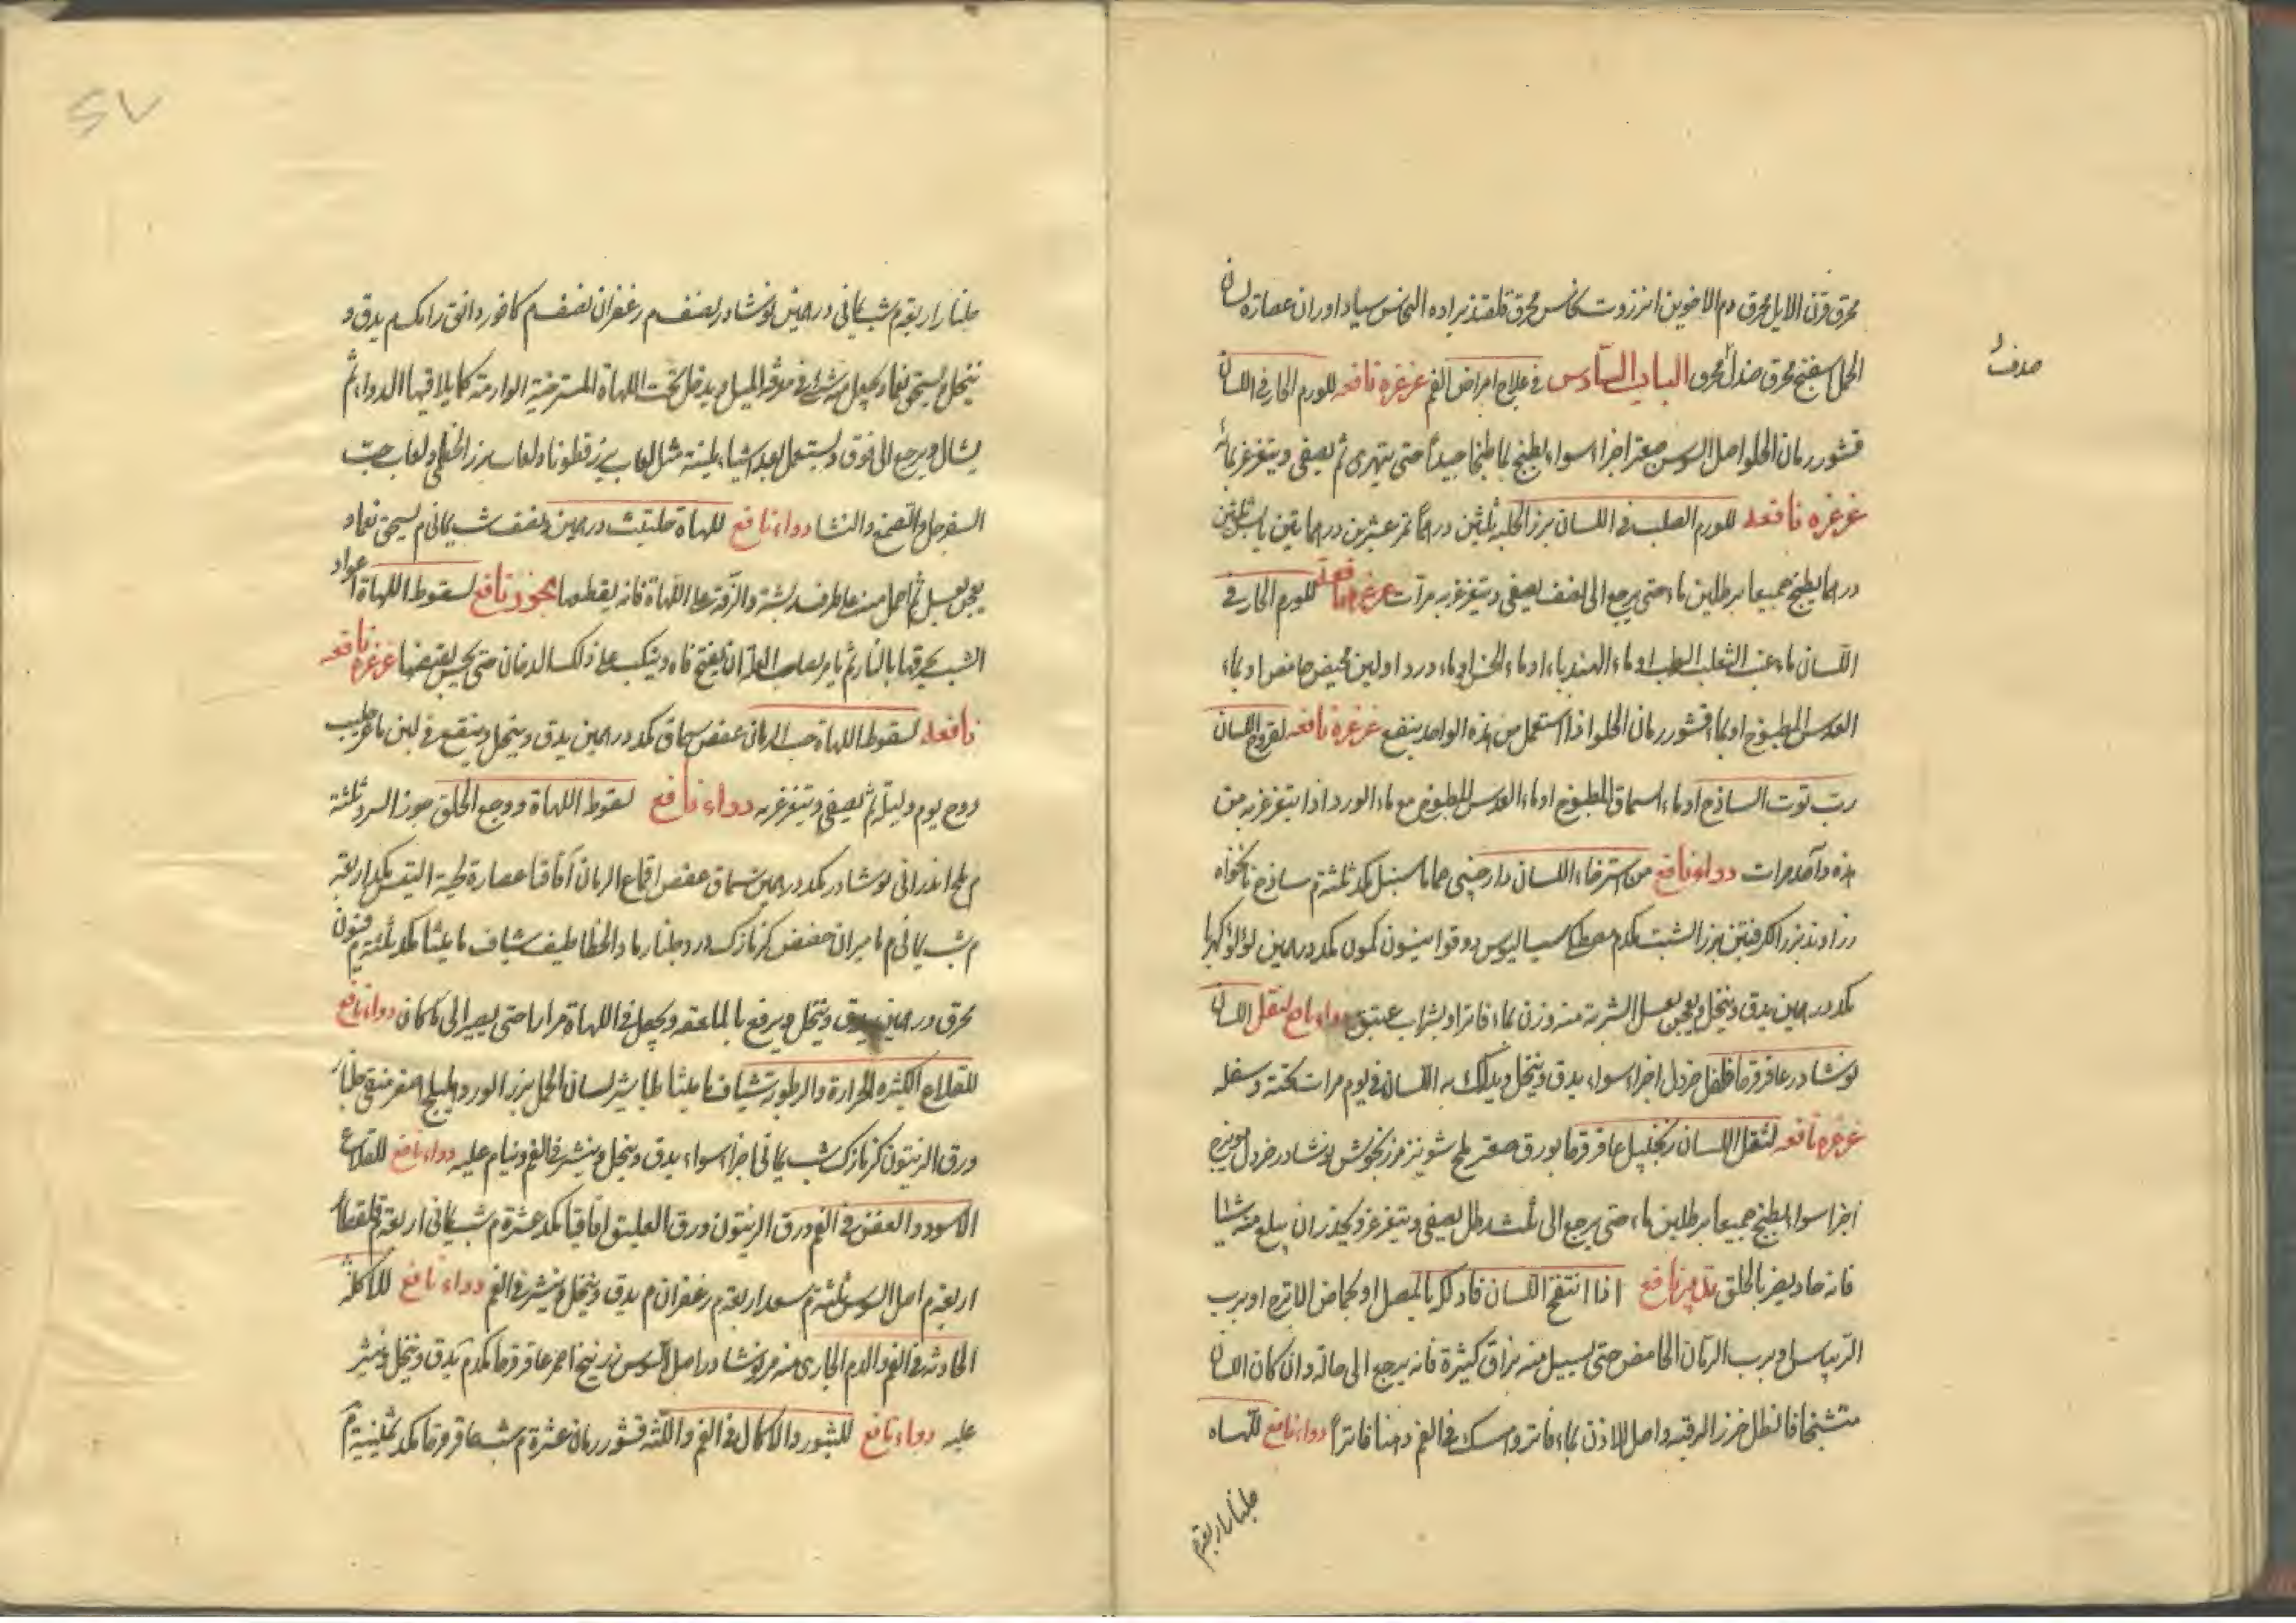 محرق قرن الايل محرق دم الاخوين انزروت نحاس محرق قلقند براده النحاس سياداوران عصارة لسان
الحمل اسفنج محرق صندل محرق الباب السادس في علاج امراض الفم غرغره نافعه للورم الحار في اللسان
صدف
قشور رمان الحلو اصل السوس صعتر اجزاء سواء يطبخ بماء طبخا جيداً حتى يتهرى ثم يصفى ويتغرغر بمائه
غرغره نافعه للورم الصلب في اللسان بزر الحلبه ثلثين درهماً تمر عشرين درهما تين يابس ثلثين
درهما يطبخ جميعا برطلين ماء حتى يرجع الى نصف يصفى ويتغرغر به مرات غرغره نافعه للورم الحار في
اللسان ماء عنب الثعلب الرطب او ماء الهندباء او ماء الخس او ماء ورد او لبن مخيض حامض او بماء
العدس المطبوخ او بماء قشور رمان الحلو اذا استعمل من هذه الواحد ينفع غرغرة نافعه لقروح اللسان
رب توت الساذج او ماء السماق المطبوخ او ماء العدس المطبوخ مع ماء الورد اذا يتغرغر به من
هذه واحد مرات دواء نافع من استرخاء اللسان دارجيني حماما سنبل مكد ثلثة م ساذج نانخواه
زراوند بزر الكرفس بزر الشبت مكد م مصطكى سيساليوس دوقو انيسون كمون مكد درهمين لؤلؤ كهربا
مكد درهمين يدق وينخل ويعجن بعسل الشربة منه وزن بماء فاتر او بشراب عتيق دواء نافع لثقل اللسان
نوشادر عاقرقرحا فلفل خردل اجزاء سواء يدق وينخل ويدلك به اللسان في يوم مرات تحته وسفله
غرغره نافعه لثقل اللسان زنجبيل عاقرقرحا بورق صعتر ملح شونيز مرزنجوش نوشادر خردل مويزج
اجزاء سواء يطبخ جميعا برطلين ماء حتى يرجع الى ثلث رطل يصفى ويتغرغر ويحذر ان يبلع منه شيئا
فانه حاد يضر بالحلق تدبير نافع اذا انتفخ اللسان فادلكه بالبصل او بحماض الاترج او برب
الريباس او برب الرمان الحامض حتى يسيل منه بزاق كثيرة فانه يرجع الى حاله وان كان اللسان
متشنجا فانطل خرز الرقبه واصل الاذن بماء فاتر وامسك في الفم دهنا فاتراً دواء نافع للهاه
جلنار اربعة م
جلنار اربعة م شب يماني درهمين نوشادر نصف م زعفران نصف م كافور دانق رامك م يدق و
ينخل ويسحق نعما ويجعل منه شئ في مغرفة الميل ويدخل تحت اللهاة المسترخية الوارمة كما يلاقيها الدواء ثم
يشال ويرجع الى فوق ويستعمل بعد اشياء ملينة مثل لعاب بزرقطونا ولعاب بزر الخطمى ولعاب حب
السفرجل والصمغ والنشا دواء نافع للهاة حلتيت درهمين ونصف شب يماني م يسحق نعما و
يعجن بعسل ثم احمل منه على طرف ريشة والزقه على اللهاة فانه يقطعها بخور نافع لسقوط اللهاة اعواد
الشبت يحرقها بالنار ثم يامر لصاحب العلة ان يفتح فاه وينكب على ذلك الدخان حتى يحس بقبضها غرغره نافعه
نافعه لسقوط اللهاة حب الرمان عفص سماق مكد درهمين يدق وينخل وينقع في لبن ماعز حليب
روح يوم وليلة ثم يصفى ويتغرغر به دواء نافع لسقوط اللهاة ووجع الحلق جوز السرو ثلثة
م ملح اندراني نوشادر مكد درهمين سماق عفص اقماع الرمان اقاقيا عصارة لحية التيس مكد اربعة
م شب يماني م ماميران حضض كزمازك ورد جلنار رماد الخطاطيف شياف ماميثا مكد ثلثة م
محرق درهمين يدق وينخل ويرفع بالملعقه ويجعل في اللهاة مرارا حتى يصير الى ماكان دواء نافع
للقلاع الكثيره الحرارة والرطوبة شياف ماميثا طباشير لسان الحمل بزر الورد اهليلج اصفر منقى جلنار
ورق الزيتون كزمازك شب يماني اجزاء سواء يدق وينخل وينشر في الفم وينام عليه دواء نافع للقلاع
الاسود والعفن في الفم ورق الزيتون ورق العليق اقاقيا مكد عشرة م شب يماني اربعة م قلقطار
اربعة م اصل السوس ثلثة م سعد اربعة م زعفران م يدق وينخل وينشر في الفم دواء نافع للاكلة
الحادثة في الفم والدم الجارى منه مر نوشادر اصل السوس زرنيخ احمر عاقرقرحا مكد م يدق وينخل وينشر
عليه دواء نافع للبثور والاكال في الفم واللثه قشور رمان عشرة م شب عاقرقرحا مكد ثمنية م